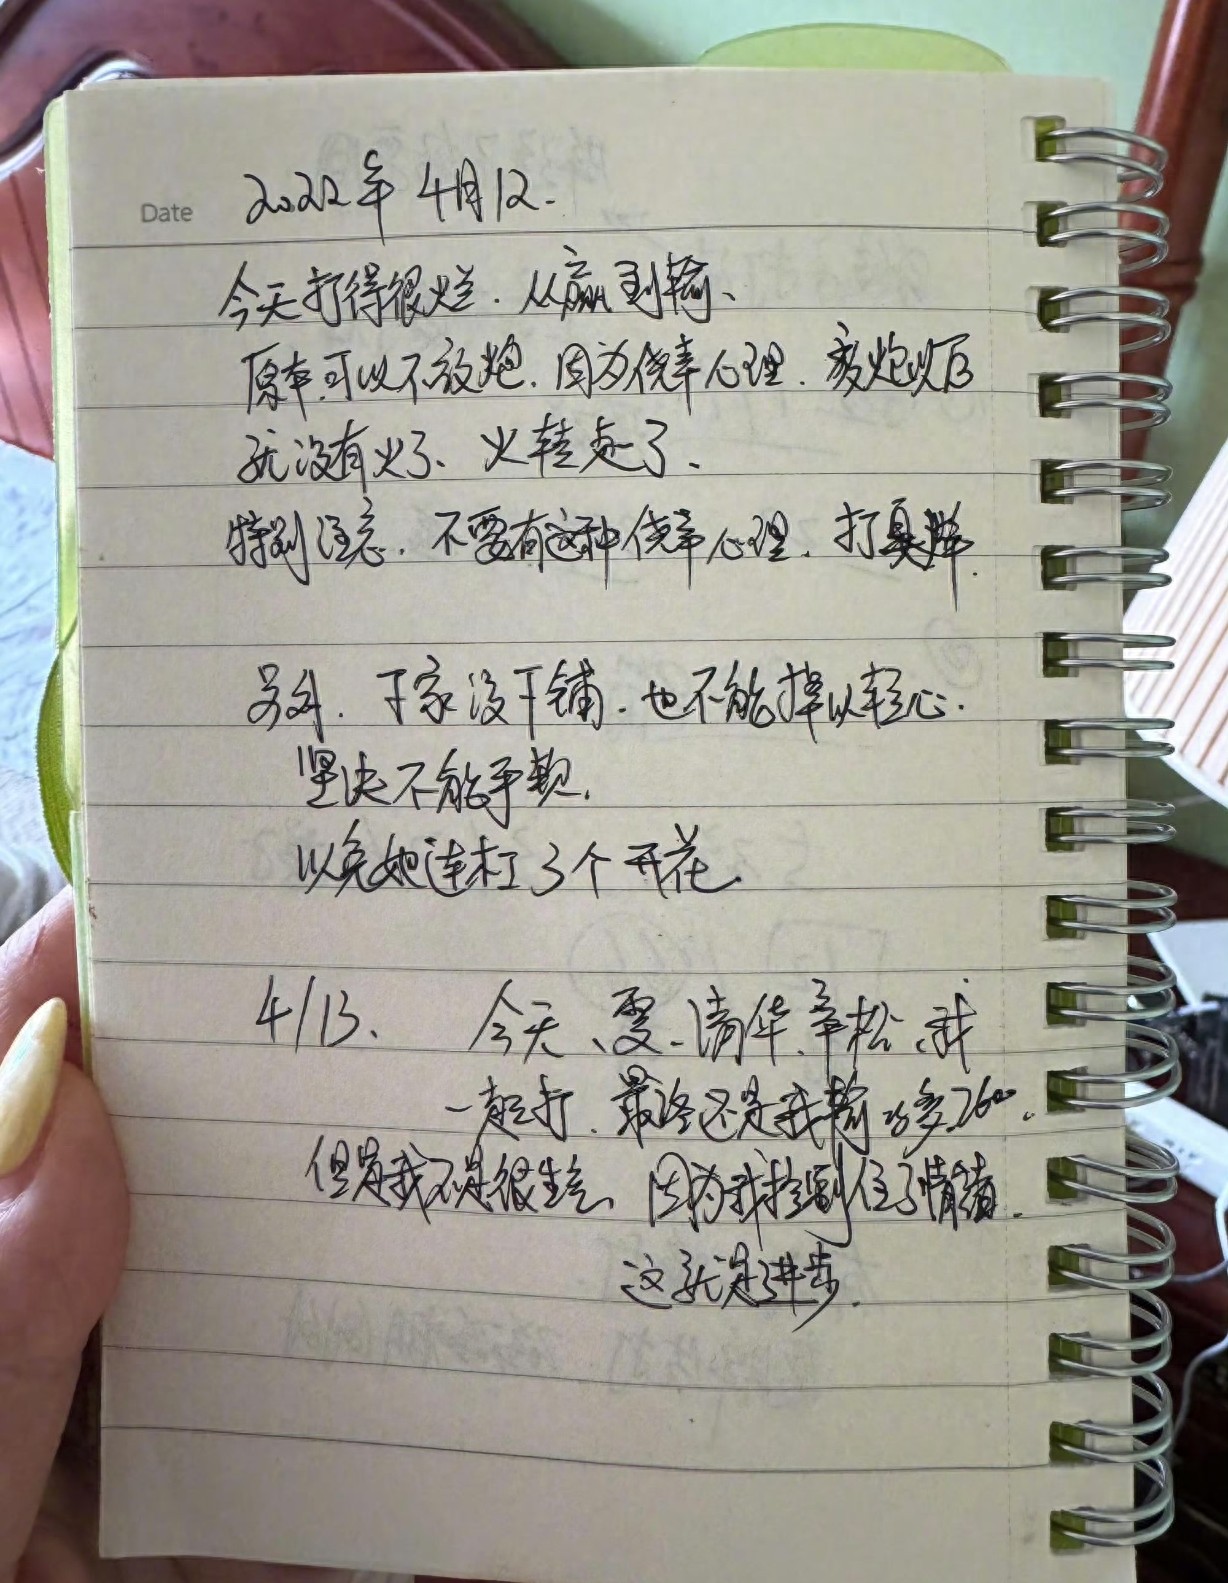 Date 2022年4月12.
今天打得很烂.从赢到输、
原本可以不放炮.因为侥幸心理.放炮以后
就没有火了、火转走了、
特别注意.不要有这种侥幸心理.打臭牌.
另外.下家没下铺.也不能掉以轻心.
坚决不能手软.
以免她连杠3个开花.
4/13、 今天、雯、清华、幸松、我
一起打.最终还是我输得多260.
但是我不是很生气、因为我控制住了情绪.
这就是进步.